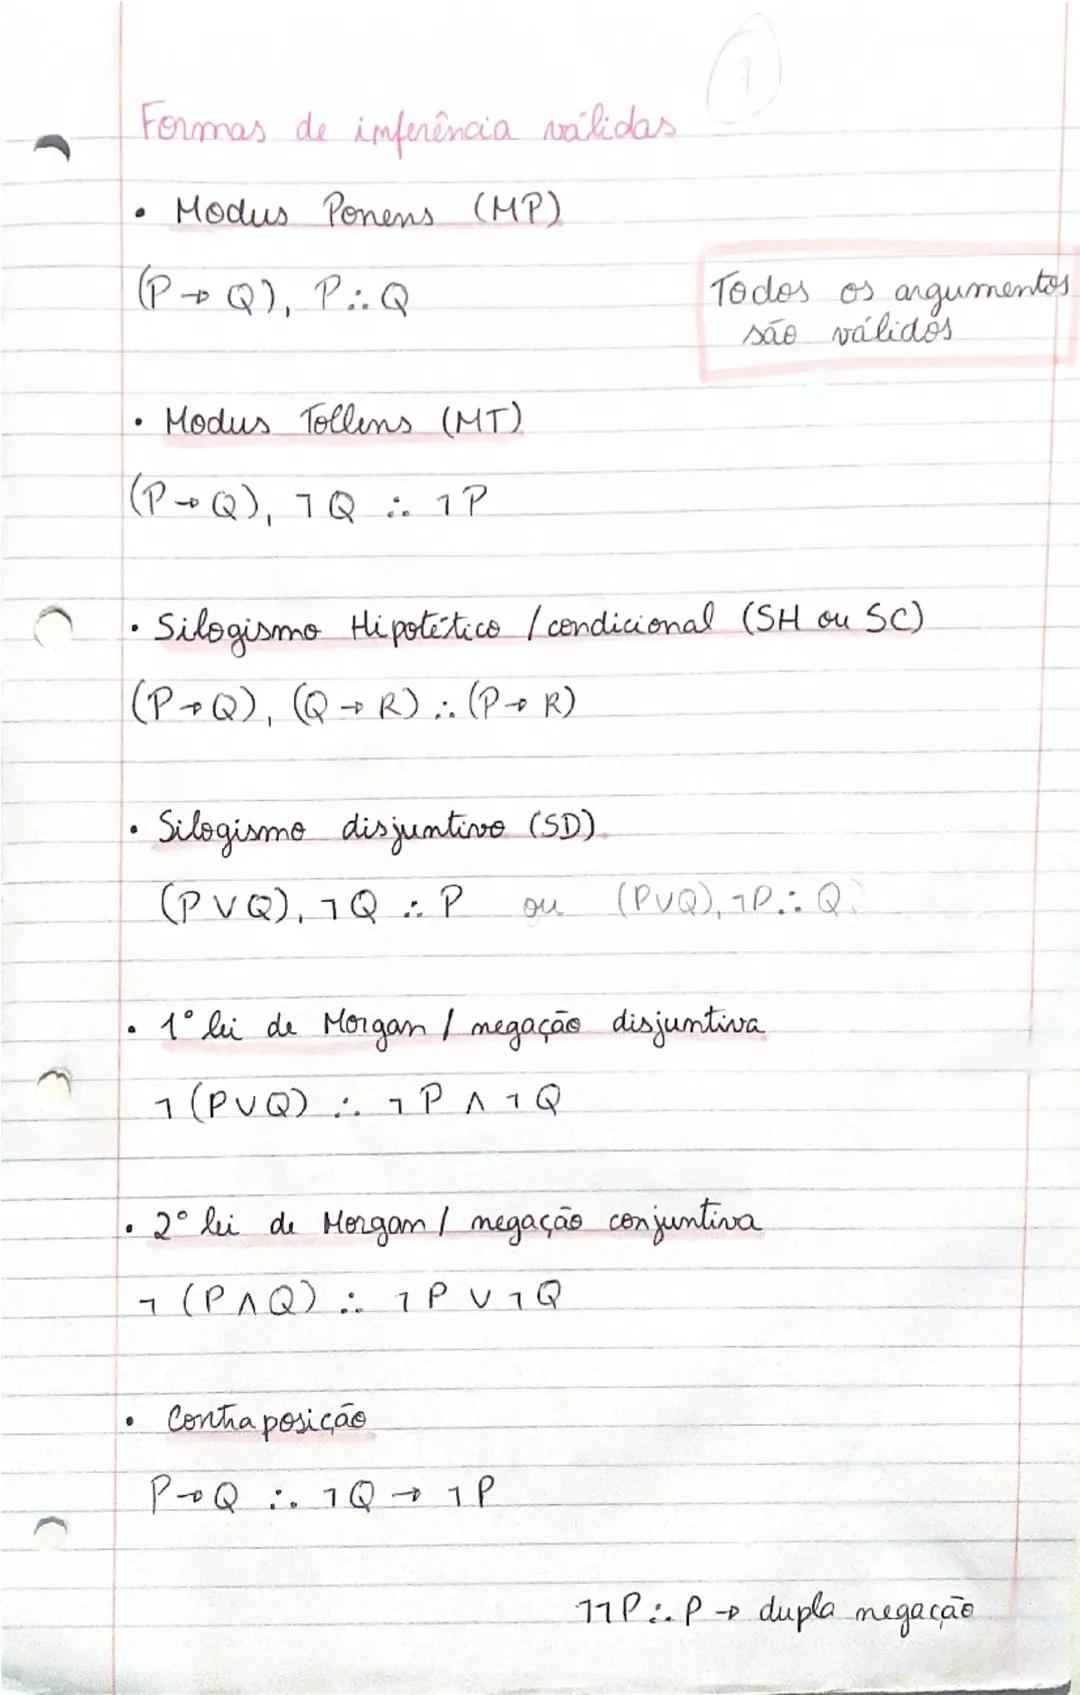 1
Formas de inferência válidas
• Modus Ponens (MP)
(P → Q), P ∴ Q
Todos os argumentos
são válidos
• Modus Tollens (MT)
(P → Q), ¬Q ∴ ¬P
• Silogismo Hipotético / condicional (SH ou SC)
(P → Q), (Q → R) ∴ (P → R)
• Silogismo disjuntivo (SD)
(P ∨ Q), ¬Q ∴ P ou (P∨Q), ¬P ∴ Q
• 1º lei de Morgan / negação disjuntiva
¬(P∨Q) ∴ ¬P ∧ ¬Q
• 2º lei de Morgan / negação conjuntiva
¬(P∧Q) ∴ ¬P ∨ ¬Q
• Contraposição
P → Q ∴ ¬Q → ¬P
¬¬P ∴ P → dupla negação